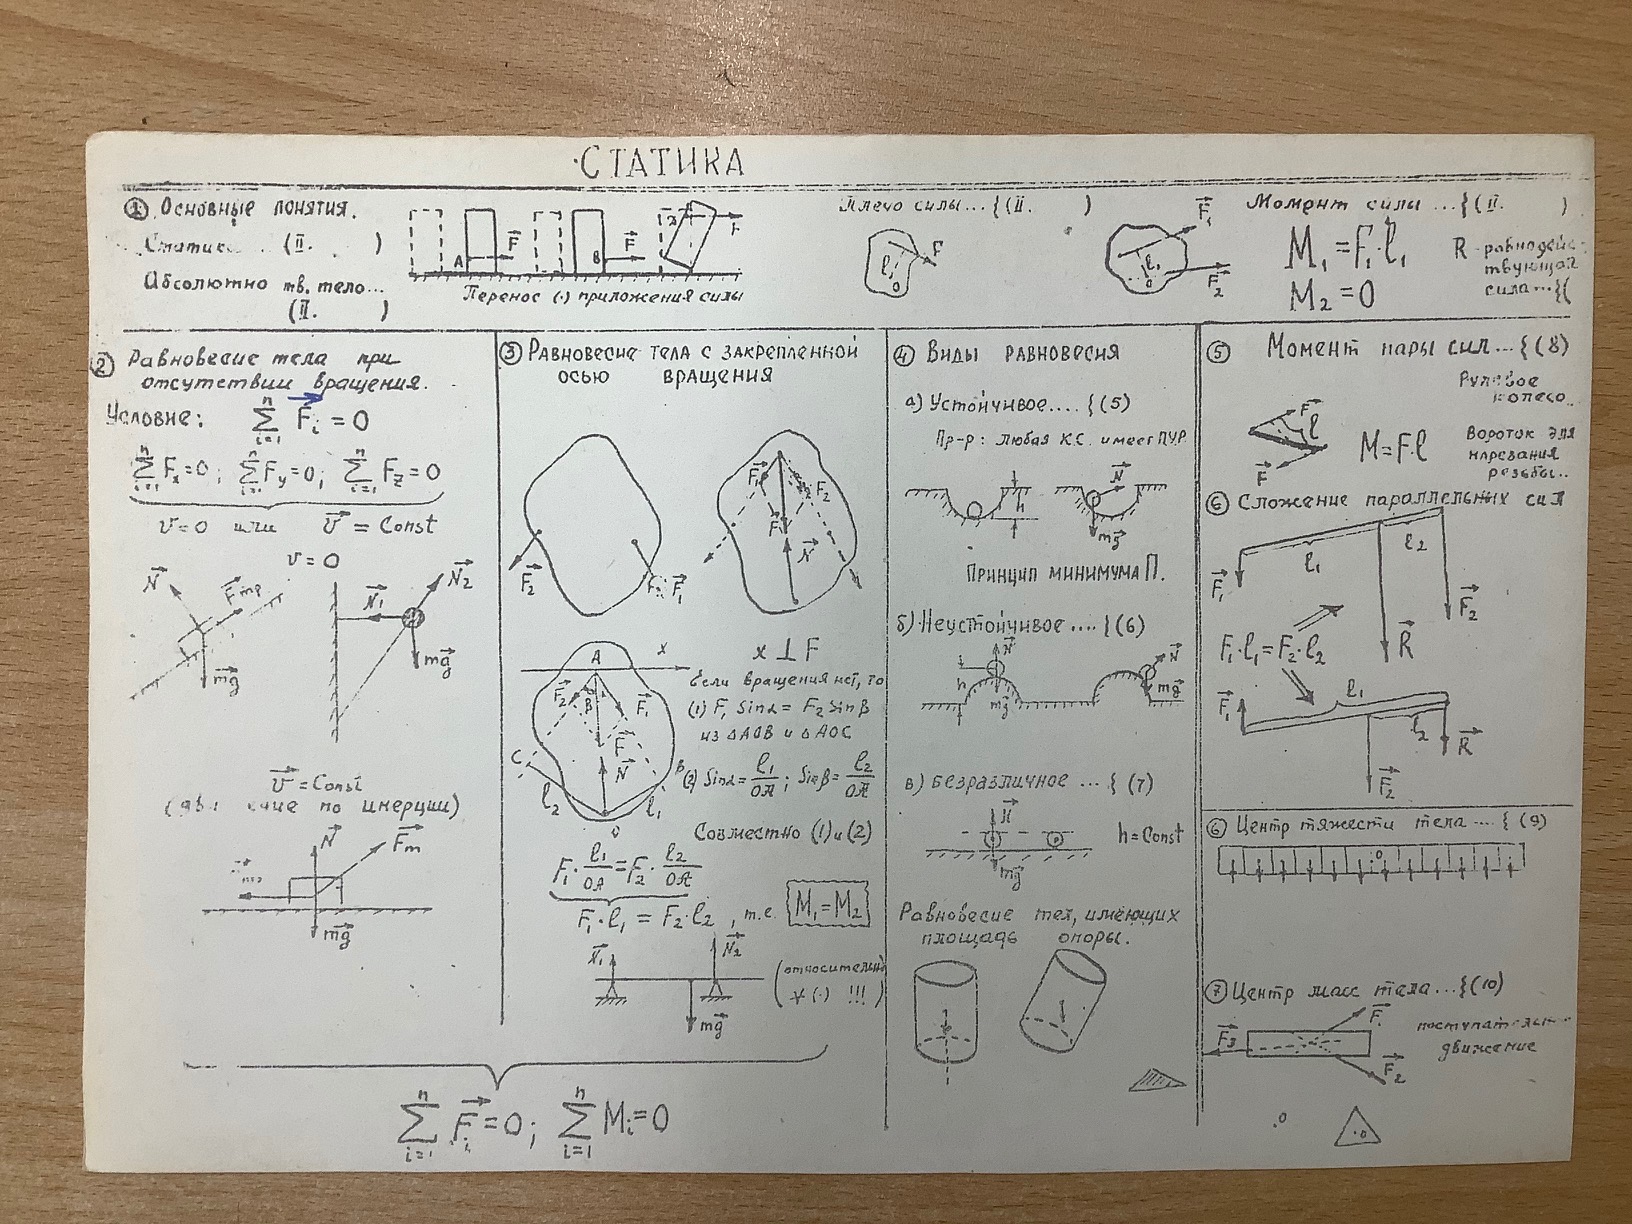 СТАТИКА
① Основные понятия.
Статика ... (II. )
Абсолютно тв. тело...
(II. )
A F
B F
F
Перенос (·) приложения силы
Плечо силы...{(II. )
l₁ F
O
F₁
l₁
O F₂
Момент силы ...{(II. )
M₁ = F₁·l₁
M₂ = 0
R - равнодействующая
сила...{(
② Равновесие тела при
отсутствии вращения.
Условие: ∑ᵢ₌₁ⁿ F⃗ᵢ = 0
∑ᵢ₌₁ⁿ Fₓ = 0; ∑ᵢ₌₁ⁿ Fy = 0; ∑ᵢ₌₁ⁿ F_z = 0
v = 0 или v⃗ = Const
v = 0
N⃗ F⃗тр
mg⃗
N⃗₁ N⃗₂
mg⃗
v⃗ = Const
по инерции)
N⃗ F⃗т
mg⃗
③ Равновесие тела с закрепленной
осью вращения
F⃗₂ F⃗₁
F⃗₁ F⃗₂
F⃗
N⃗
A x
F⃗₂ β F⃗₁
F⃗
C N⃗ B
l₂ l₁
O
x ⊥ F
Если вращения нет, то
(1) F₁ Sinα = F₂ Sinβ
из △AOB и △AOC
(2) Sinα = l₁/OA ; Sinβ = l₂/OA
Совместно (1) и (2)
F₁ · l₁/OA = F₂ · l₂/OA
F₁·l₁ = F₂·l₂ , т.е. M₁=M₂
N⃗₁ N⃗₂
mg⃗
(относительно
∀(·) !!!)
∑ᵢ₌₁ⁿ F⃗ᵢ = 0; ∑ᵢ₌₁ⁿ Mᵢ = 0
④ Виды равновесия
а) Устойчивое.... {(5)
Пр-р: любая К.С. имеет П.У.Р.
h N⃗
mg⃗
Принцип минимума П.
б) Неустойчивое .... {(6)
N⃗ N⃗
h
mg⃗ mg⃗
в) Безразличное ... {(7)
N⃗
h = Const
mg⃗
Равновесие тел, имеющих
площадь опоры.
⑤ Момент пары сил...{(8)
Рулевое
колесо..
F⃗ l
F⃗
M = F·l
Вороток для
нарезания
резьбы..
⑥ Сложение параллельных сил
l₁ l₂
F⃗₁ F⃗₂
R⃗
F₁·l₁ = F₂·l₂
l₁
F⃗₁ l₂
R⃗
F⃗₂
⑥ Центр тяжести тела .... {(9)
O
⑦ Центр масс тела...{(10)
F⃗₁
F⃗₃
F⃗₂
поступательное
движение
.O
.O